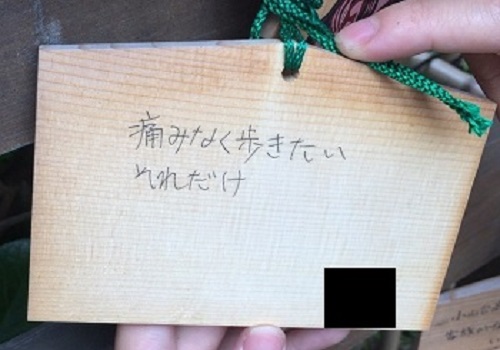 痛みなく歩きたい
それだけ